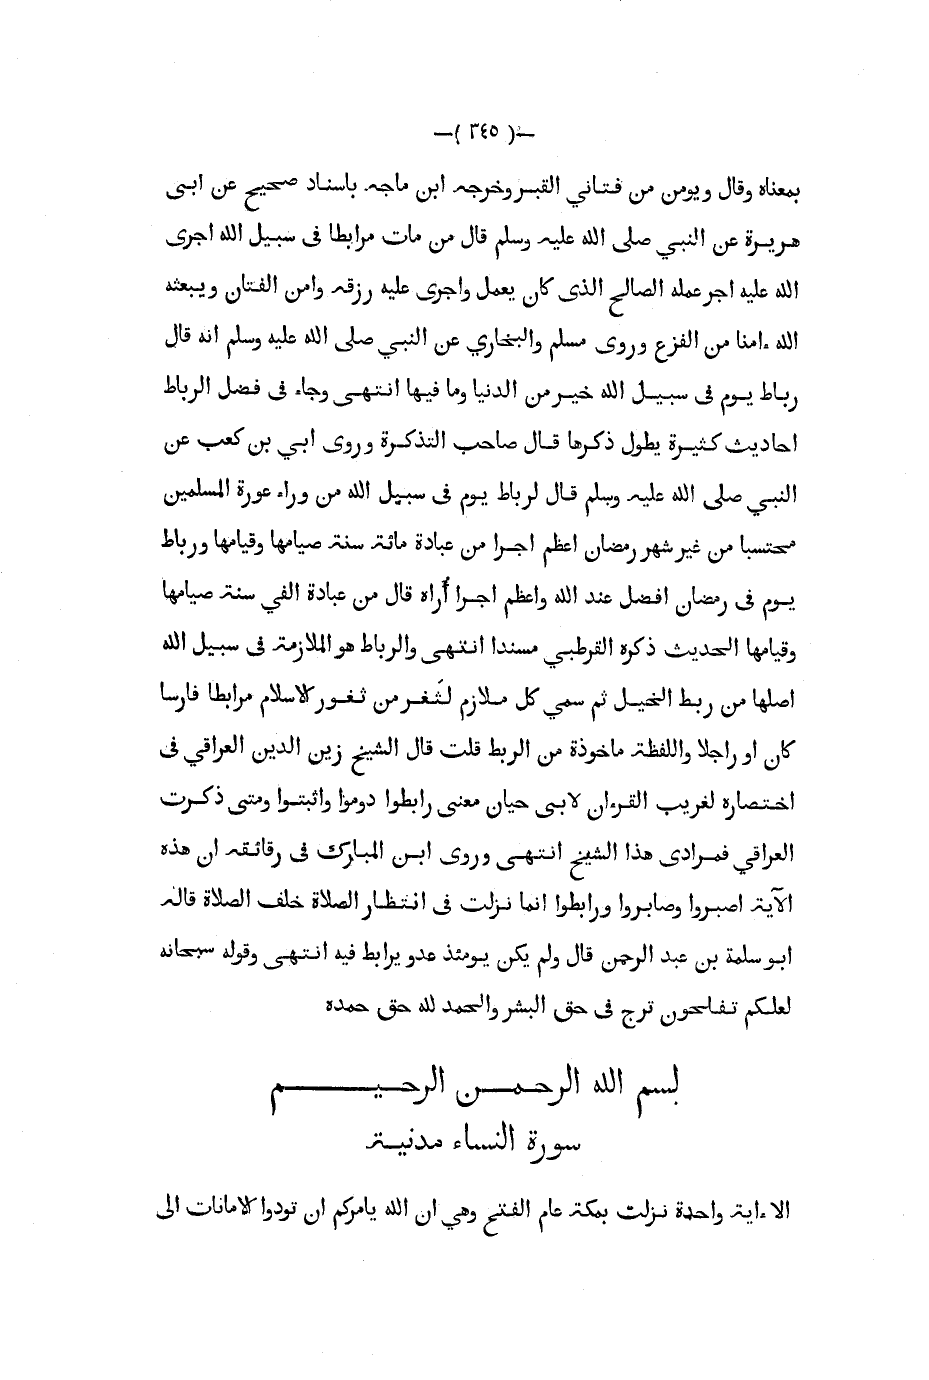 —( ٣٤٥ )—
بمعناه وقال ويومن من فتاني القبر وخرجه ابن ماجه باسناد صحيح عن ابى
هريرة عن النبي صلى الله عليه وسلم قال من مات مرابطا فى سبيل الله اجرى
الله عليه اجر عمله الصالح الذى كان يعمل واجرى عليه رزقه وامن الفتان ويبعثه
الله ءامنا من الفزع وروى مسلم والبخاري عن النبي صلى الله عليه وسلم انه قال
رباط يوم فى سبيل الله خير من الدنيا وما فيها انتهى وجاء فى فضل الرباط
احاديث كثيرة يطول ذكرها قال صاحب التذكرة وروى ابي بن كعب عن
النبي صلى الله عليه وسلم قال لرباط يوم فى سبيل الله من وراء عورة المسلمين
محتسبا من غير شهر رمضان اعظم اجرا من عبادة مائة سنة صيامها وقيامها ورباط
يوم فى رمضان افضل عند الله واعظم اجرا أراه قال من عبادة الفي سنة صيامها
وقيامها الحديث ذكره القرطبي مسندا انتهى والرباط هو الملازمة فى سبيل الله
اصلها من ربط الخيل ثم سمي كل ملازم لثَغر من ثغور الاسلام مرابطا فارسا
كان او راجلا واللفظة ماخوذة من الربط قلت قال الشيخ زين الدين العراقي فى
اختصاره لغريب القرءان لابى حيان معنى رابطوا دوموا واثبتوا ومتى ذكرت
العراقي فمرادى هذا الشيخ انتهى وروى ابن المبارك فى رقائقه ان هذه
الآية اصبروا وصابروا ورابطوا انما نزلت فى انتظار الصلاة خلف الصلاة قاله
ابو سلمة بن عبد الرحمن قال ولم يكن يومئذ عدو يرابط فيه انتهى وقوله سبحانه
لعلكم تفلحون ترج فى حق البشر والحمد لله حق حمده
بسم الله الرحمن الرحيم
سورة النساء مدنية
الا ءاية واحدة نزلت بمكة عام الفتح وهي ان الله يامركم ان تودوا الامانات الى